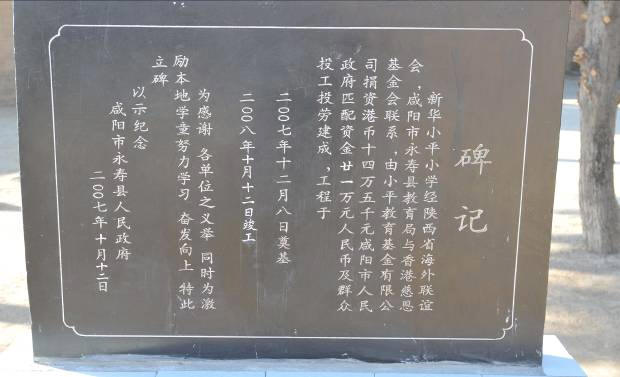 碑记
新华小平小学经陕西省海外联谊
会，咸阳市永寿县教育局与香港慈恩
基金会联系，由小平教育基金有限公
司捐资港币十四万五千元咸阳市人民
政府匹配资金廿一万元人民币及群众
投工投劳建成，工程于
二〇〇七年十二月八日奠基
二〇〇八年十月十二日竣工
为感谢 各单位之义举 同时为激
励本地学童努力学习 奋发向上 特此
立碑
以示纪念
咸阳市永寿县人民政府
二〇〇七年十月十二日